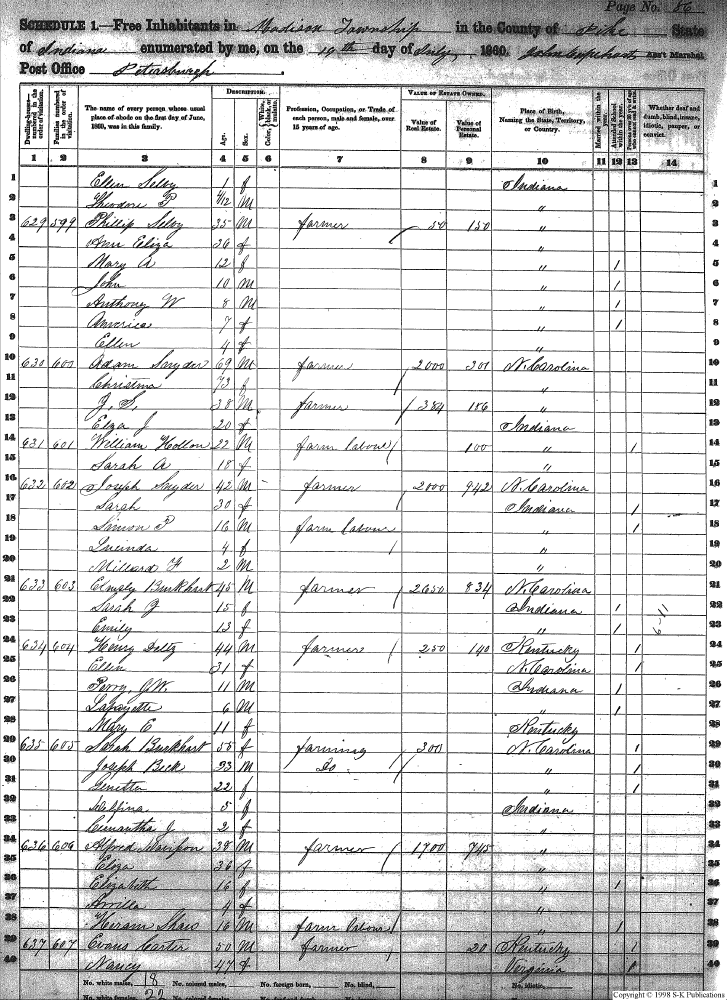 Page No. 86
SCHEDULE 1.—Free Inhabitants in Madison Township in the County of Pike State
of Indiana enumerated by me, on the 19th day of July, 1860. Ass't Marshal
Post Office Petersburgh.
Dwelling-houses—numbered in the order of visitation.
Families numbered in the order of visitation.
The name of every person whose usual place of abode on the first day of June, 1860, was in this family.
DESCRIPTION.
Age.
Sex.
Color, White, black, or mulatto.
Profession, Occupation, or Trade of each person, male and female, over 15 years of age.
VALUE OF ESTATE OWNED.
Value of Real Estate.
Value of Personal Estate.
Place of Birth, Naming the State, Territory, or Country.
Married within the year.
Attended School within the year.
Whether deaf and dumb, blind, insane, idiotic, pauper, or convict.
1 2 3 4 5 6 7 8 9 10 11 12 13 14
1 Ellen Selvy 1 f Indiana 1
2 Theodore P 4/12 M " 2
3 629 599 Phillip Selvy 35 M farmer 50 150 " 3
4 Ann Eliza 36 f " 4
5 Mary A 12 f " 1 5
6 John 10 M " 1 6
7 Anthony W 8 M " 1 7
8 America 7 f " 1 8
9 Ellen 4 f " 9
10 630 600 Adam Snyder 69 M farmer 2000 301 N. Carolina 10
11 Christina 73 f " 11
12 J. S. 38 M farmer 384 186 " 12
13 Elza J 20 f Indiana 13
14 631 601 William Hollon 22 M farm labour 100 " 1 14
15 Sarah A 18 f " 15
16 632 602 Joseph Snyder 42 M farmer 2000 942 N. Carolina 16
17 Sarah 30 f Indiana 1 17
18 Simon P 16 M farm labour " 1 18
19 Lucinda 4 f " 19
20 Millard F 2 M " 20
21 633 603 Elmsly Burkhart 45 M farmer 2650 834 N. Carolina 21
22 Sarah J 15 f Indiana 1 22
23 Emily 13 f " 1 23
24 634 604 Henry Deltz 44 M farmer 250 140 Kentucky 1 24
25 Ellen 31 f N. Carolina 1 25
26 Perry, G.W. 11 M Indiana 1 26
27 Lafayette 6 M " 1 27
28 Mary E 11 f Kentucky 28
29 635 605 Sarah Burkhart 55 f farming 300 N. Carolina 1 29
30 Joseph Beck 23 M Do " 1 30
31 22 f " 1 31
32 Delfina 5 f Indiana 32
33 J 2 f " 33
34 636 606 Alfred 38 M farmer 1700 745 " 34
35 Eliza 36 f " 35
36 Elizabeth 16 f " 1 36
37 Arvilla 4 f " 37
38 Hiram Shaw 16 M farm labour " 1 38
39 637 607 Evans Carter 50 M farmer 20 Kentucky 1 39
40 Nancy 47 f Virginia 1 40
6-11
No. white males, 18 No. colored males, No. foreign born, No. blind,
No. white females, 22 No. colored females, No. idiotic,
Copyright © 1998 S-K Publications